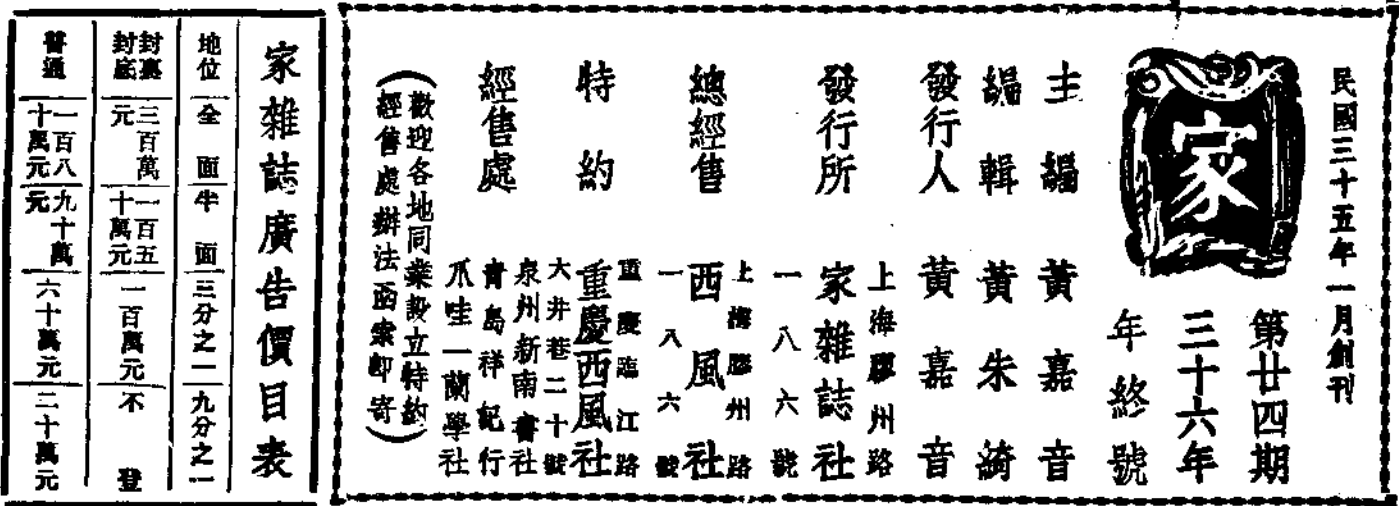 民國三十五年一月創刊
家
第廿四期
三十六年
年終號
主編　黃嘉音
編輯　黃朱綺
發行人　黃嘉音
發行所　家雜誌社
上海膠州路
一八六號
總經售　西風社
上海膠州路
一八六號
特約　重慶西風社
重慶臨江路
大井巷二十號
經售處　泉州新南書社
青島祥記行
爪哇一蘭學社
（歡迎各地同業設立特約
經售處辦法函索即寄）
家雜誌廣告價目表
地位　全面　半面　三分之一　九分之一
封裏封底　三百萬元　一百五十萬元　一百萬元　不登
普通　一百八十萬元　九十萬元　六十萬元　二十萬元